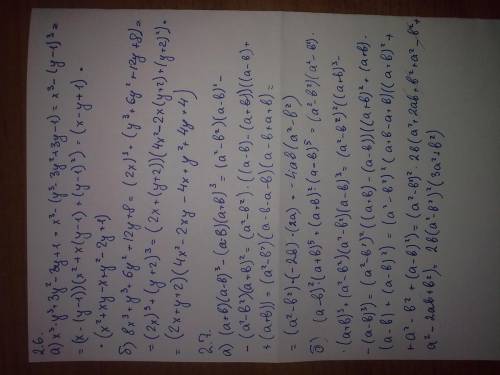 2.6.
а) x³-y³+3y²-3y+1 = x³-(y³-3y²+3y-1) = x³-(y-1)³ =
= (x-(y-1))(x²+x(y-1)+(y-1)²) = (x-y+1)·
·(x²+xy-x+y²-2y+1)
б) 8x³+y³+6y²+12y+8 = (2x)³+(y³+6y²+12y+8) =
= (2x)³+(y+2)³ = (2x+(y+2))(4x²-2x(y+2)+(y+2)²) =
= (2x+y+2)(4x²-2xy-4x+y²+4y+4)
2.7.
а) (a+b)(a-b)³-(a-b)(a+b)³ = (a²-b²)(a-b)²-
-(a²-b²)(a+b)² = (a²-b²)·((a-b)-(a+b))((a-b)+
+(a+b)) = (a²-b²)(a-b-a-b)(a-b+a+b) =
= (a²-b²)·(-2b)·(2a) = -4ab(a²-b²)
б) (a-b)²(a+b)⁵-(a+b)²(a-b)⁵ = (a²-b²)(a²-b²)·
·(a+b)³-(a²-b²)(a²-b²)(a-b)³ = (a²-b²)²((a+b)³-
-(a-b)³) = (a²-b²)²((a+b)-(a-b))((a+b)²+(a+b)·
(a-b)+(a-b)²) = (a²-b²)²(a+b-a+b)((a+b)²+
+a²-b²+(a-b)²) = (a²-b²)²2b(a²+2ab+b²+a²-b²+
a²-2ab+b²) = 2b(a²-b²)²(3a²+b²)